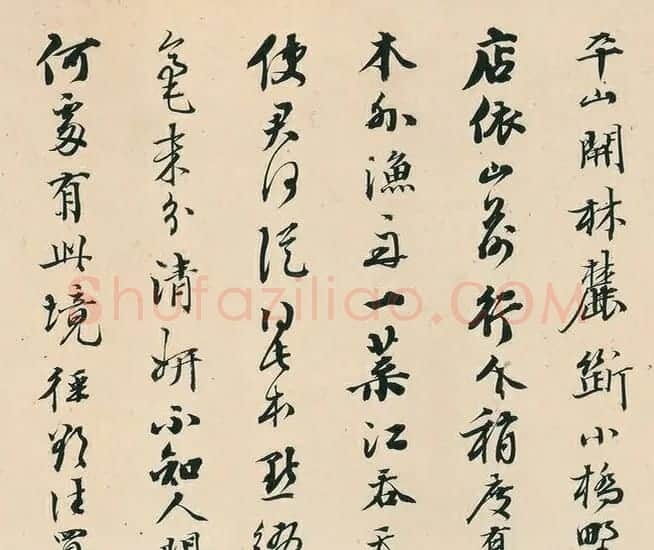 平山開林麓斷小橋野
店依山前行人稍度
木外漁舟一葉江吞天
使君何從得此本點綴
毫末分清妍不知人間
何處有此境徑欲往買
Shufaziliao.COM